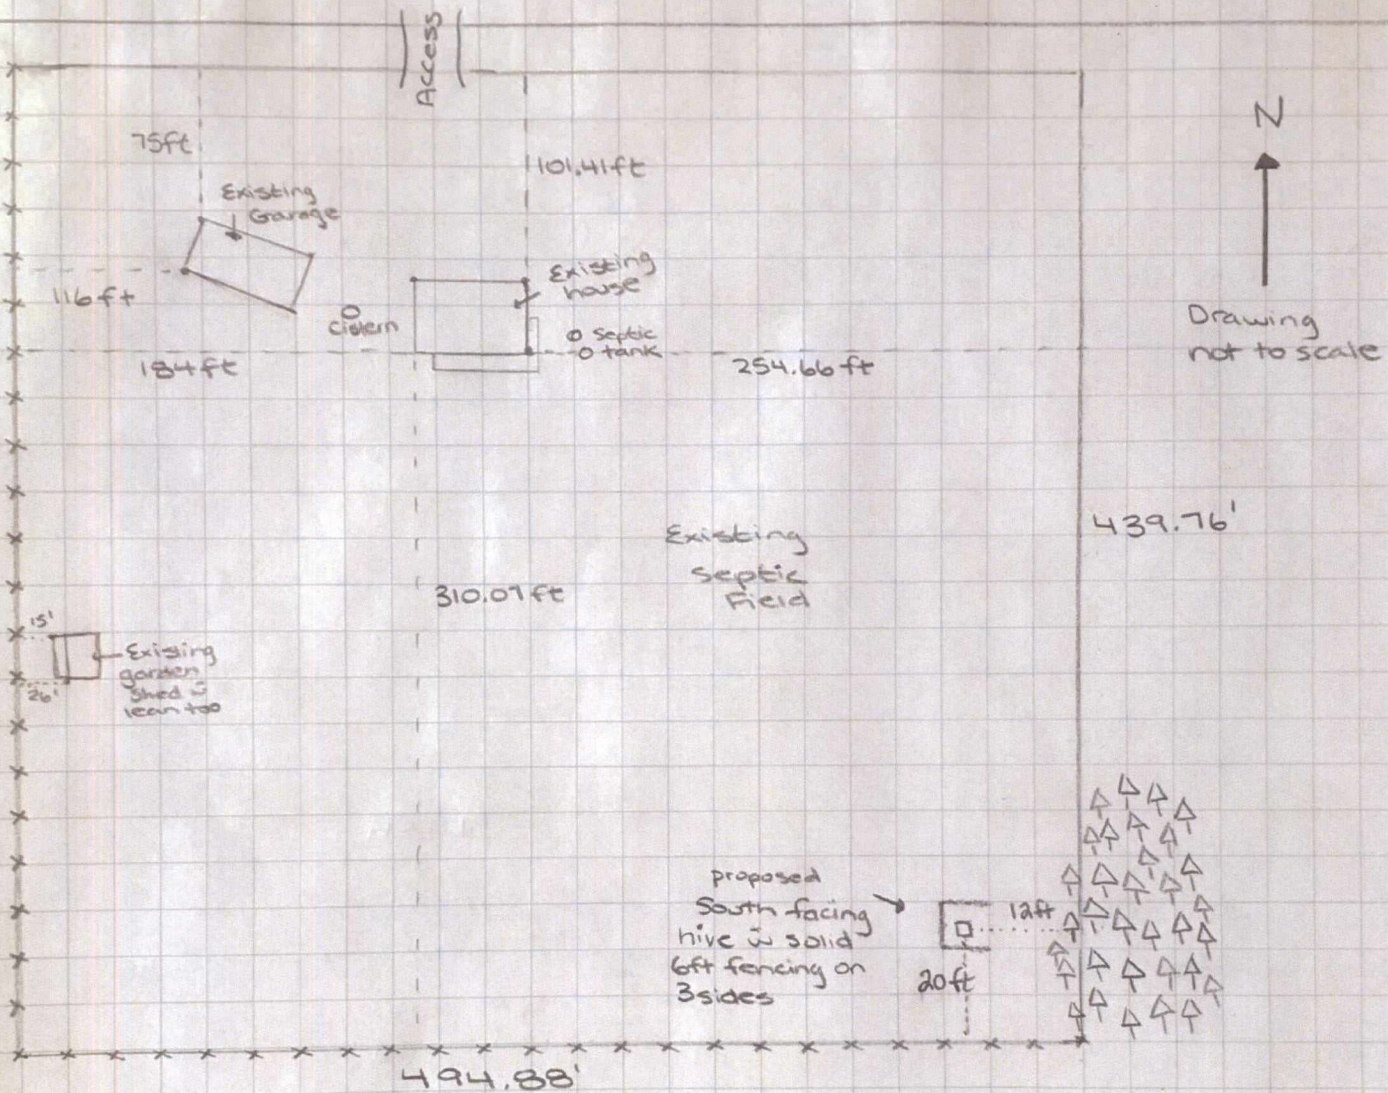 Access
N
75ft
101.41ft
Existing
Garage
Existing
house
116ft
Cistern
Septic
tank
Drawing
not to scale
184ft
254.66ft
439.76'
Existing
Septic
Field
310.07ft
15'
Existing
garden
shed w̄
lean too
26'
proposed
South facing
hive w̄ solid
6ft fencing on
3 sides
12ft
20ft
494.88'